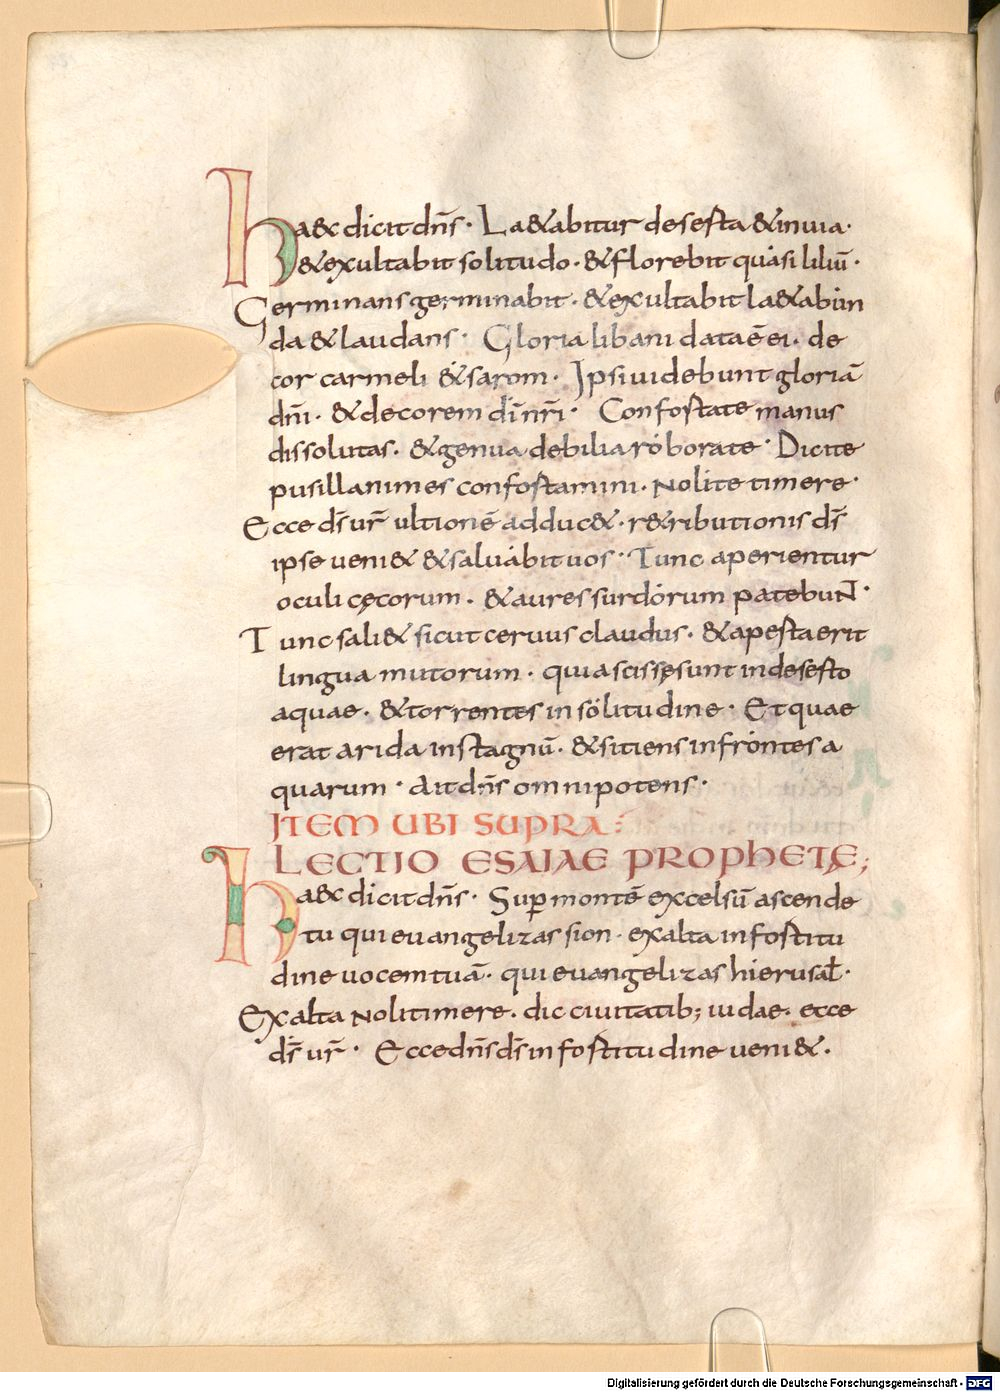 ha&c dicit dn̄s · La&abitur deserta & inuia ·
& exultabit solitudo · & florebit quasi liliū ·
Germinans germinabit · & exultabit la&abun
da & laudans · Gloria libani data ē ei · de
cor carmeli & saron · Ipsi uidebunt gloriā
dn̄i · & decorem dī nr̄i · Confortate manus
dissolutas · & genua debilia roborate · Dicite
pusillanimes confortamini · Nolite timere ·
Ecce ds̄ ur̄ ultionē adduc& · r&ributionis ds̄
ipse ueni& & saluabit uos · Tunc aperientur
oculi cęcorum · & aures surdorum patebuNT ·
Tunc sali& sicut ceruus claudus · & aperta erit
lingua mutorum · quia scissę sunt in deserto
aquae · & torrentes in solitudine · Et quae
erat arida in stagnū · & sitiens in frontes a
quarum · Ait dn̄s omnipotens ·
ITEM UBI SUPRA :
LECTIO ESAIAE PROPHETAE ;
ha&c dicit dn̄s · Sup̄ montē excelsū ascende
tu qui euangelizas sion · exalta in fortitu
dine uocem tuā · qui euangelizas hierusal̄ ·
Exalta Noli timere · dic ciuitatib; iudae · ecce
ds̄ ur̄ · Ecce dn̄s ds̄ in fortitudine ueni& ·
Digitalisierung gefördert durch die Deutsche Forschungsgemeinschaft - DFG